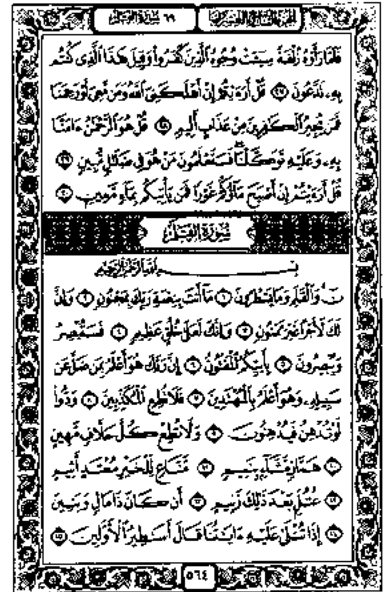 الجزء التاسع والعشرون ٦٨ سورة القلم
فَلَمَّا رَأَوْهُ زُلْفَةً سِيئَتْ وُجُوهُ الَّذِينَ كَفَرُوا وَقِيلَ هَٰذَا الَّذِي كُنتُم
بِهِ تَدَّعُونَ ٢٧ قُلْ أَرَءَيْتُمْ إِنْ أَهْلَكَنِيَ اللَّهُ وَمَن مَّعِيَ أَوْ رَحِمَنَا
فَمَن يُجِيرُ الْكَافِرِينَ مِنْ عَذَابٍ أَلِيمٍ ٢٨ قُلْ هُوَ الرَّحْمَٰنُ ءَامَنَّا
بِهِ وَعَلَيْهِ تَوَكَّلْنَا فَسَتَعْلَمُونَ مَنْ هُوَ فِي ضَلَالٍ مُّبِينٍ ٢٩
قُلْ أَرَءَيْتُمْ إِنْ أَصْبَحَ مَاؤُكُمْ غَوْرًا فَمَن يَأْتِيكُم بِمَاءٍ مَّعِينٍ ٣٠
سُورَةُ الْقَلَمِ
بِسْمِ اللَّهِ الرَّحْمَٰنِ الرَّحِيمِ
ن وَالْقَلَمِ وَمَا يَسْطُرُونَ ١ مَا أَنتَ بِنِعْمَةِ رَبِّكَ بِمَجْنُونٍ ٢ وَإِنَّ
لَكَ لَأَجْرًا غَيْرَ مَمْنُونٍ ٣ وَإِنَّكَ لَعَلَىٰ خُلُقٍ عَظِيمٍ ٤ فَسَتُبْصِرُ
وَيُبْصِرُونَ ٥ بِأَييِّكُمُ الْمَفْتُونُ ٦ إِنَّ رَبَّكَ هُوَ أَعْلَمُ بِمَن ضَلَّ عَن
سَبِيلِهِ وَهُوَ أَعْلَمُ بِالْمُهْتَدِينَ ٧ فَلَا تُطِعِ الْمُكَذِّبِينَ ٨ وَدُّوا
لَوْ تُدْهِنُ فَيُدْهِنُونَ ٩ وَلَا تُطِعْ كُلَّ حَلَّافٍ مَّهِينٍ
١٠ هَمَّازٍ مَّشَّاءٍ بِنَمِيمٍ ١١ مَّنَّاعٍ لِّلْخَيْرِ مُعْتَدٍ أَثِيمٍ
١٢ عُتُلٍّ بَعْدَ ذَٰلِكَ زَنِيمٍ ١٣ أَن كَانَ ذَا مَالٍ وَبَنِينَ
١٤ إِذَا تُتْلَىٰ عَلَيْهِ ءَايَاتُنَا قَالَ أَسَاطِيرُ الْأَوَّلِينَ ١٥
٥٦٤